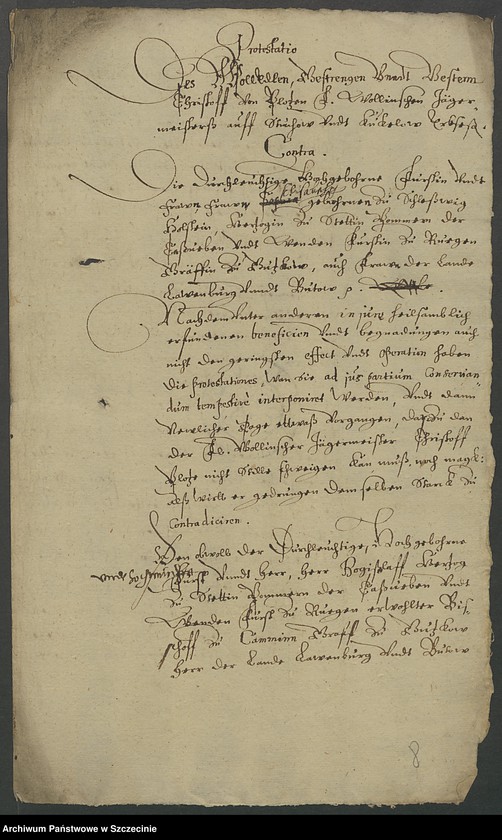 Protestatio
Des WollEdlen, Gestrengen Vnndt Vesten
Christoff Von Ploten F. Wollinschen Jäger-
meisterß auff Stuchow Vndt Kückelow Erbseß.
Contra.
Die Durchleuchtige Hochgebohrne Fürstin Vndt
Fraw Fraw Sophia gebohrnen Zu Schleßwig
Holstein, Hertzogin Zu Stettin Pommern der
Caßueben Vndt Wenden Fürstin Zu Ruegen
Gräffin Zu Gutzkow, auch Fraw der Lande
Lawenburg Vnndt Butow p.
Nachdem Vnter anderen in jure heilsamblich
erfundenen beneficien Vndt begnadungen auch
nicht den geringsten effect Vndt operation haben
die protestationes, wan sie ad jus partium conservan-
dum tempestivè interponiret werden, Vndt dann
Newlicher tage etwaß Vorgangen, daZu den
der Fl. Wollinscher Jägermeister Christoff
Plote nicht stille schweigen kan muß, noch magk:
Alß wirdt er gedrungen demselben starck Zu
Contradiciren.
Den obwoll der Durchleuchtige, Hochgebohrne
Fürst Vnndt Herr, Herr Bogißlaff Hertzog
Zu Stettin Pommern der Caßueben Vndt
Wenden Fürst Zu Ruegen erwohlter Bis-
schoff Zu Cammin Graff Zu Gutzkow
Herr der Lande Lawenburg Vndt Butow
8
Archiwum Państwowe w Szczecinie